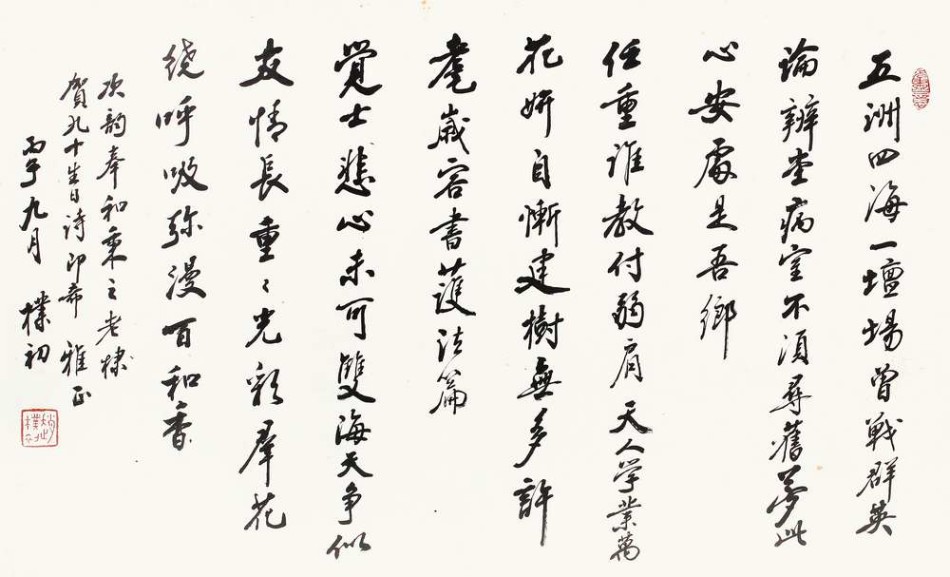 五洲四海一壇場曾戰群英
論辨堂病室不須尋舊夢此
心安處是吾鄉
任重誰教付弱肩天人学業萬
花妍自慚建樹無多許
耄歲容書護法篇
覺士悲心未可雙海天争似
友情長重〻光彩羣花
繞呼吸弥漫百和香
次韵奉和之老棣
賀九十生日詩即希 雅正
丙子九月 樸初